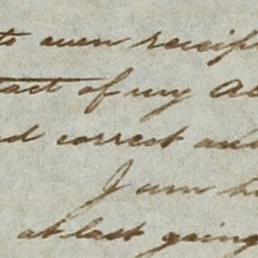 to own receip
act of my A
d correct and
I am h
at last going